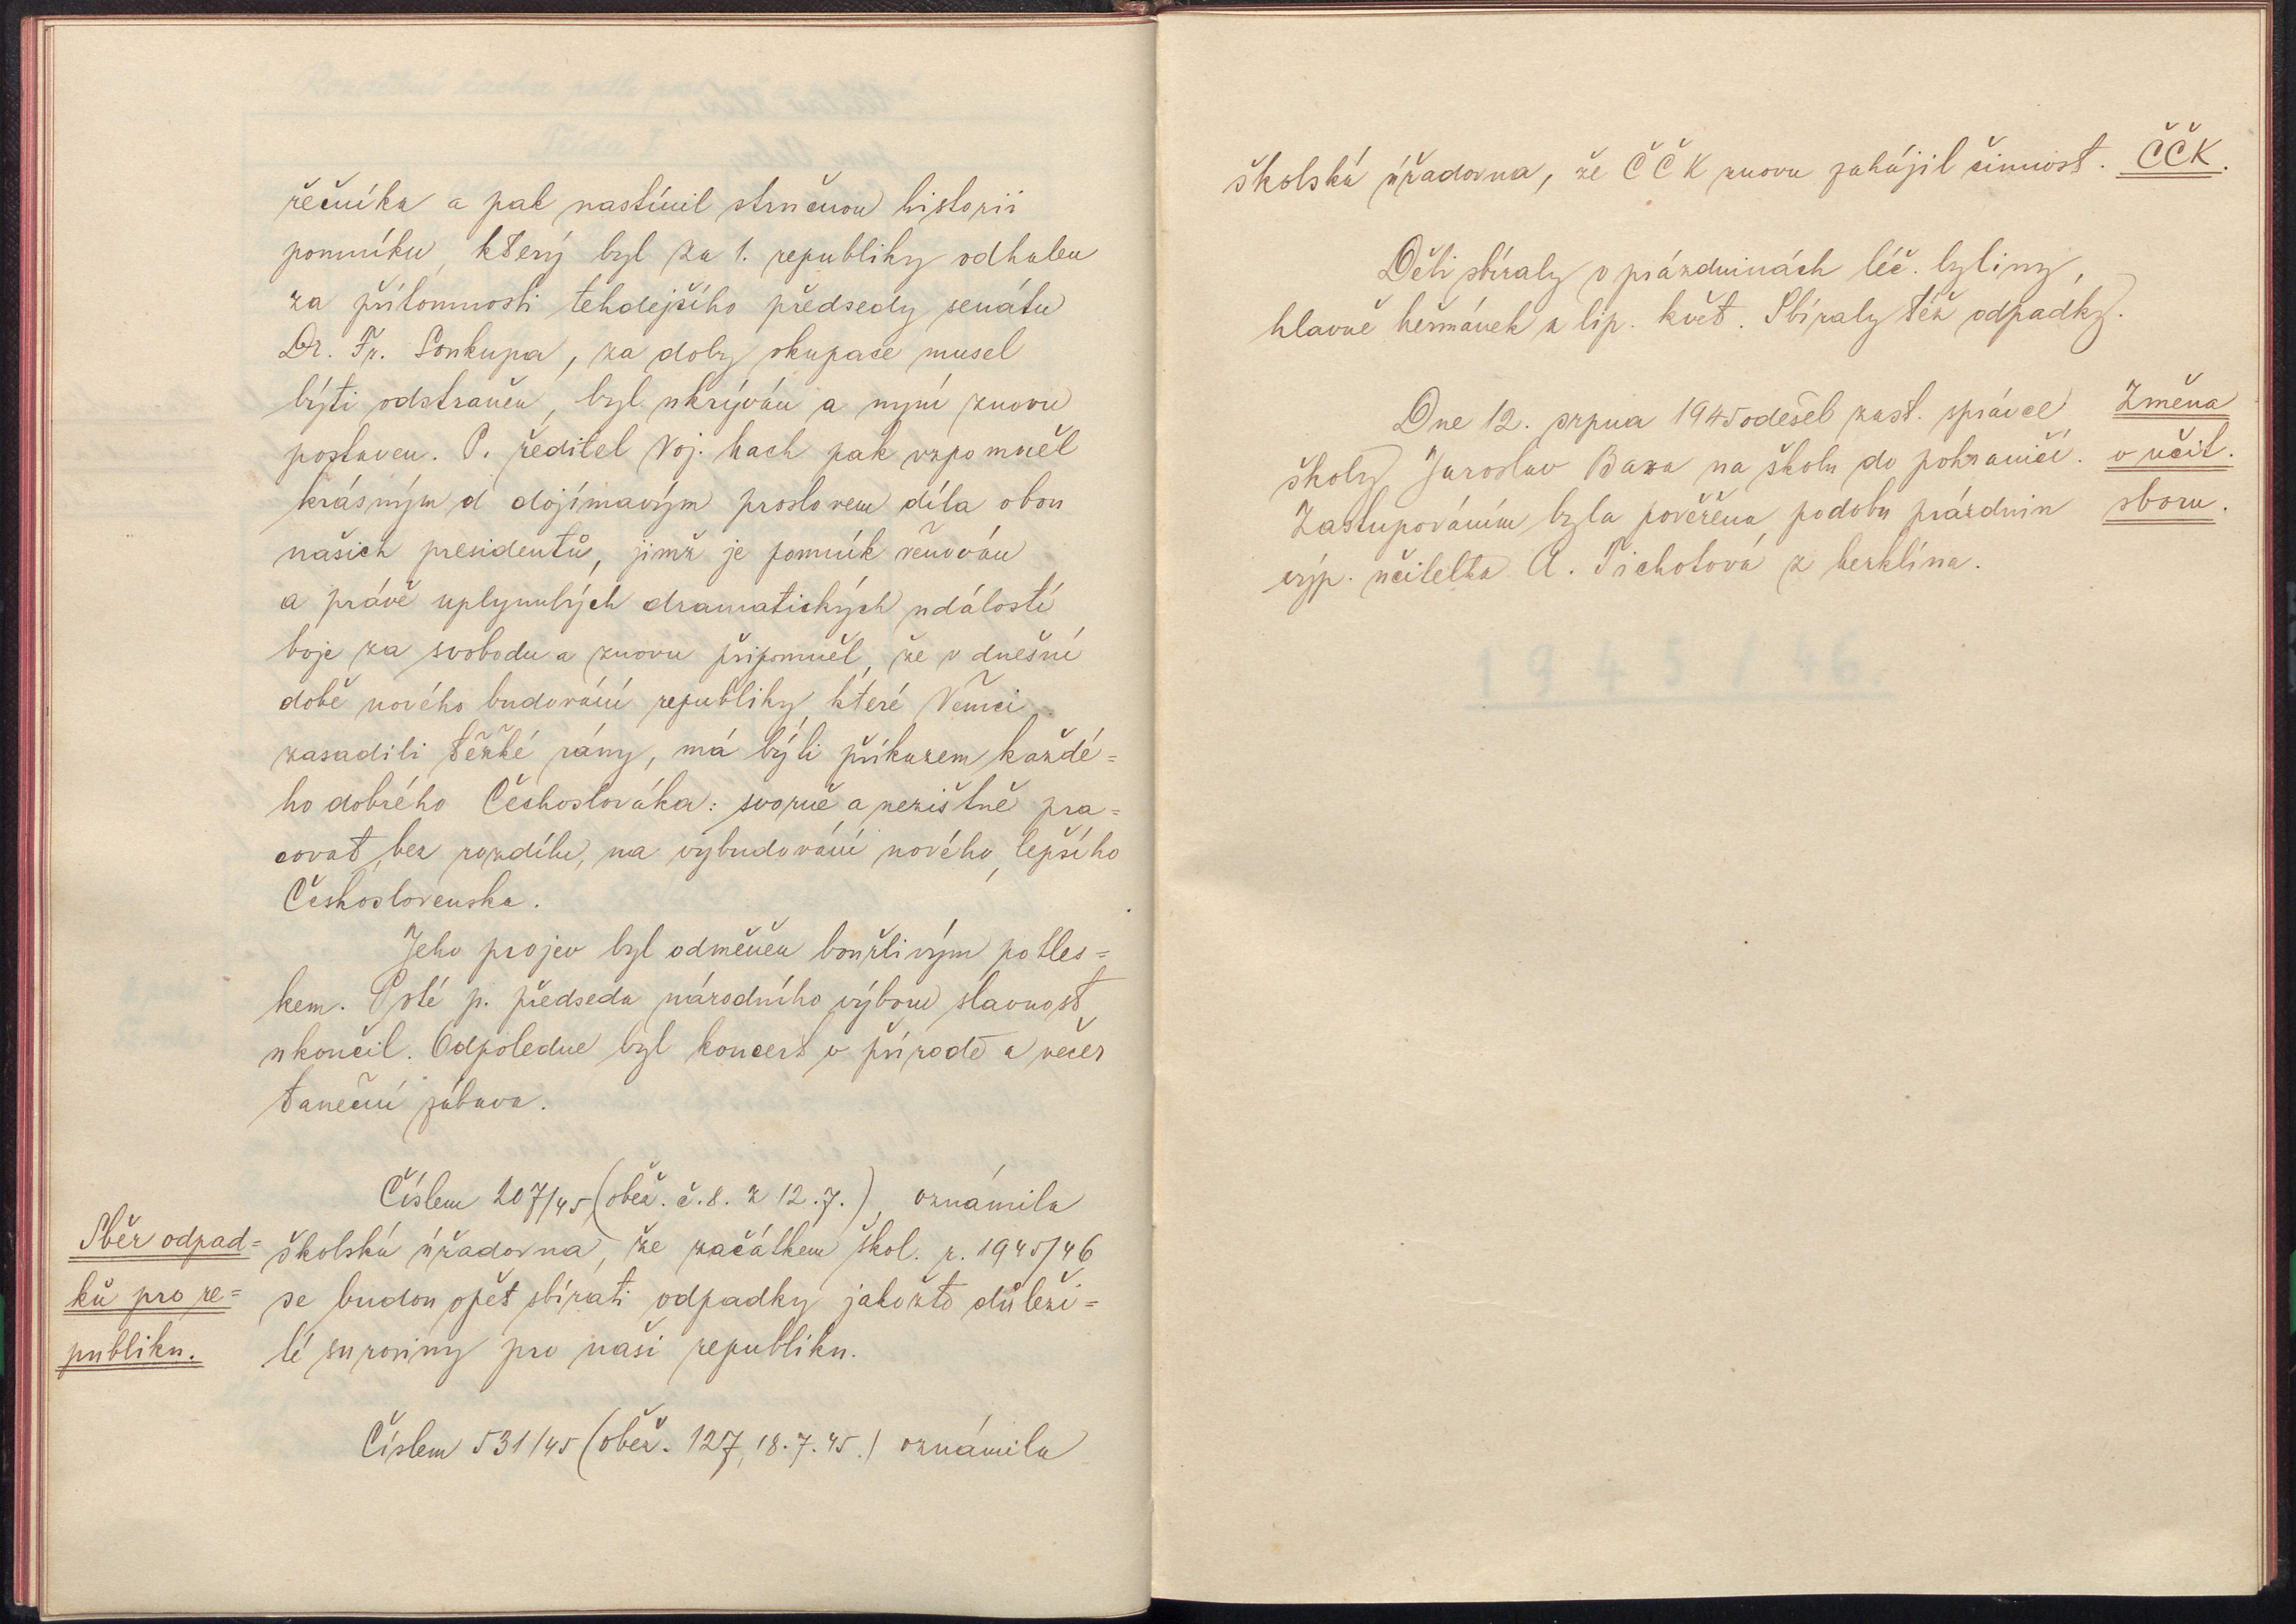 řečníka a pak nastínil stručnou historii
pomníku, který byl za 1. republiky odhalen
za přítomnosti tehdejšího předsedy senátu
Dr. Fr. Soukupa, za doby okupace musel
býti odstraněn, byl ukrýván a nyní znovu
postaven. P. ředitel Voj. Lach pak vzpomněl
krásným a dojímavým proslovem díla obou
našich presidentů, jimž je pomník věnován
a právě uplynulých dramatických událostí
boje za svobodu a znovu připomněl, že v dnešní
době nového budování republiky, které Němci
zasadili těžké rány, má býti příkazem každé=
ho dobrého Čechoslováka: svorně a nezištně pra=
covat, bez rozdílu, na vybudování nového, lepšího
Československa.
Jeho projev byl odměněn bouřlivým potles=
kem. Poté p. předseda národního výboru slavnost
ukončil. Odpoledne byl koncert v přírodě a večer
taneční zábava.
Číslem 207/45 (oběž. č. 8. z 12. 7.), oznámila
Sběr odpad=
školská úřadovna, že začátkem škol. r. 1945/46
ků pro re=
se budou opět sbírati odpadky jakožto důleži=
publiku.
té suroviny pro naši republiku.
Číslem 531/45 (oběž. 127, 18. 7. 45.) oznámila
školská úřadovna, že ČČK znovu zahájil činnost.
ČČK.
Děti sbíraly o prázdninách léč. byliny,
hlavně heřmánek a lip. květ. Sbíraly též odpadky.
Dne 12. srpna 1945 odešel zast. správce
Změna
školy Jaroslav Baza na školu do pohraničí.
v učit.
Zastupováním byla pověřena po dobu prázdnin
sboru.
výp. učitelka A. Tichotová z